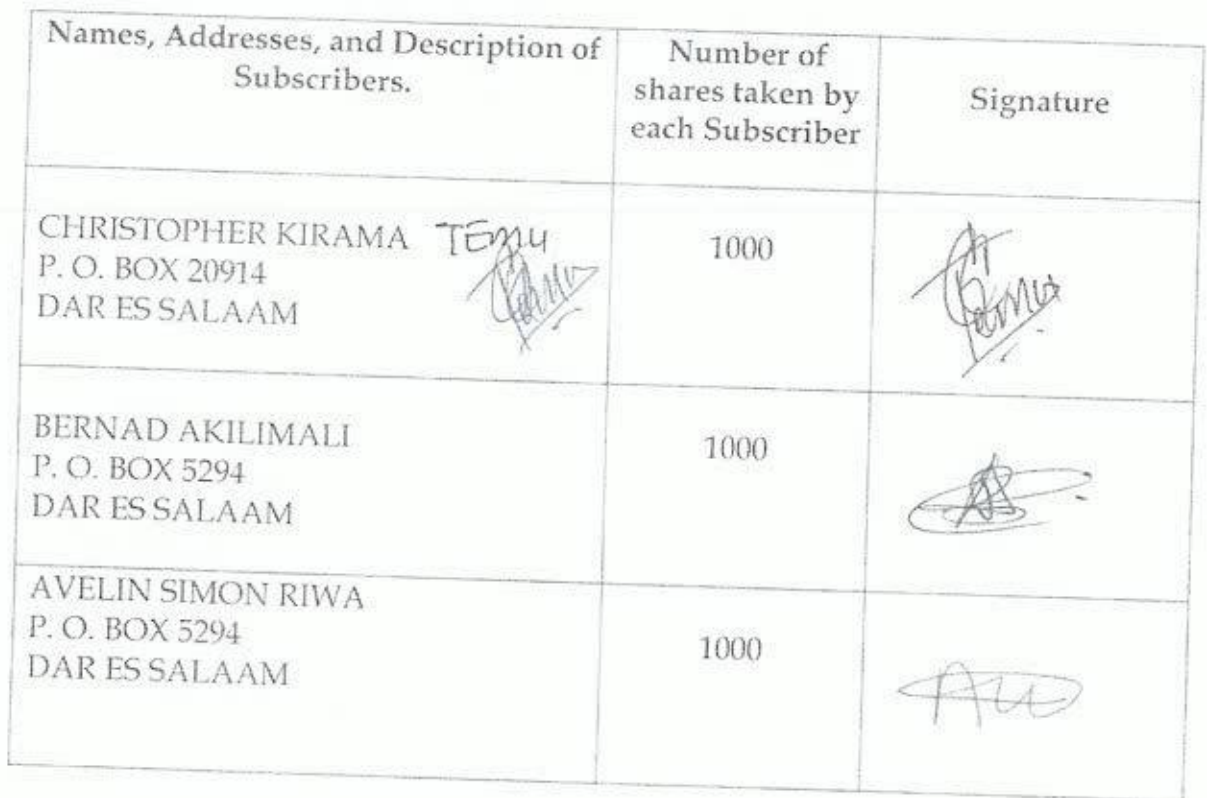 Names, Addresses, and Description of
Subscribers.
Number of
shares taken by
each Subscriber
Signature
CHRISTOPHER KIRAMA TEMU
P. O. BOX 20914
DAR ES SALAAM
1000
BERNAD AKILIMALI
P. O. BOX 5294
DAR ES SALAAM
1000
AVELIN SIMON RIWA
P. O. BOX 5294
DAR ES SALAAM
1000